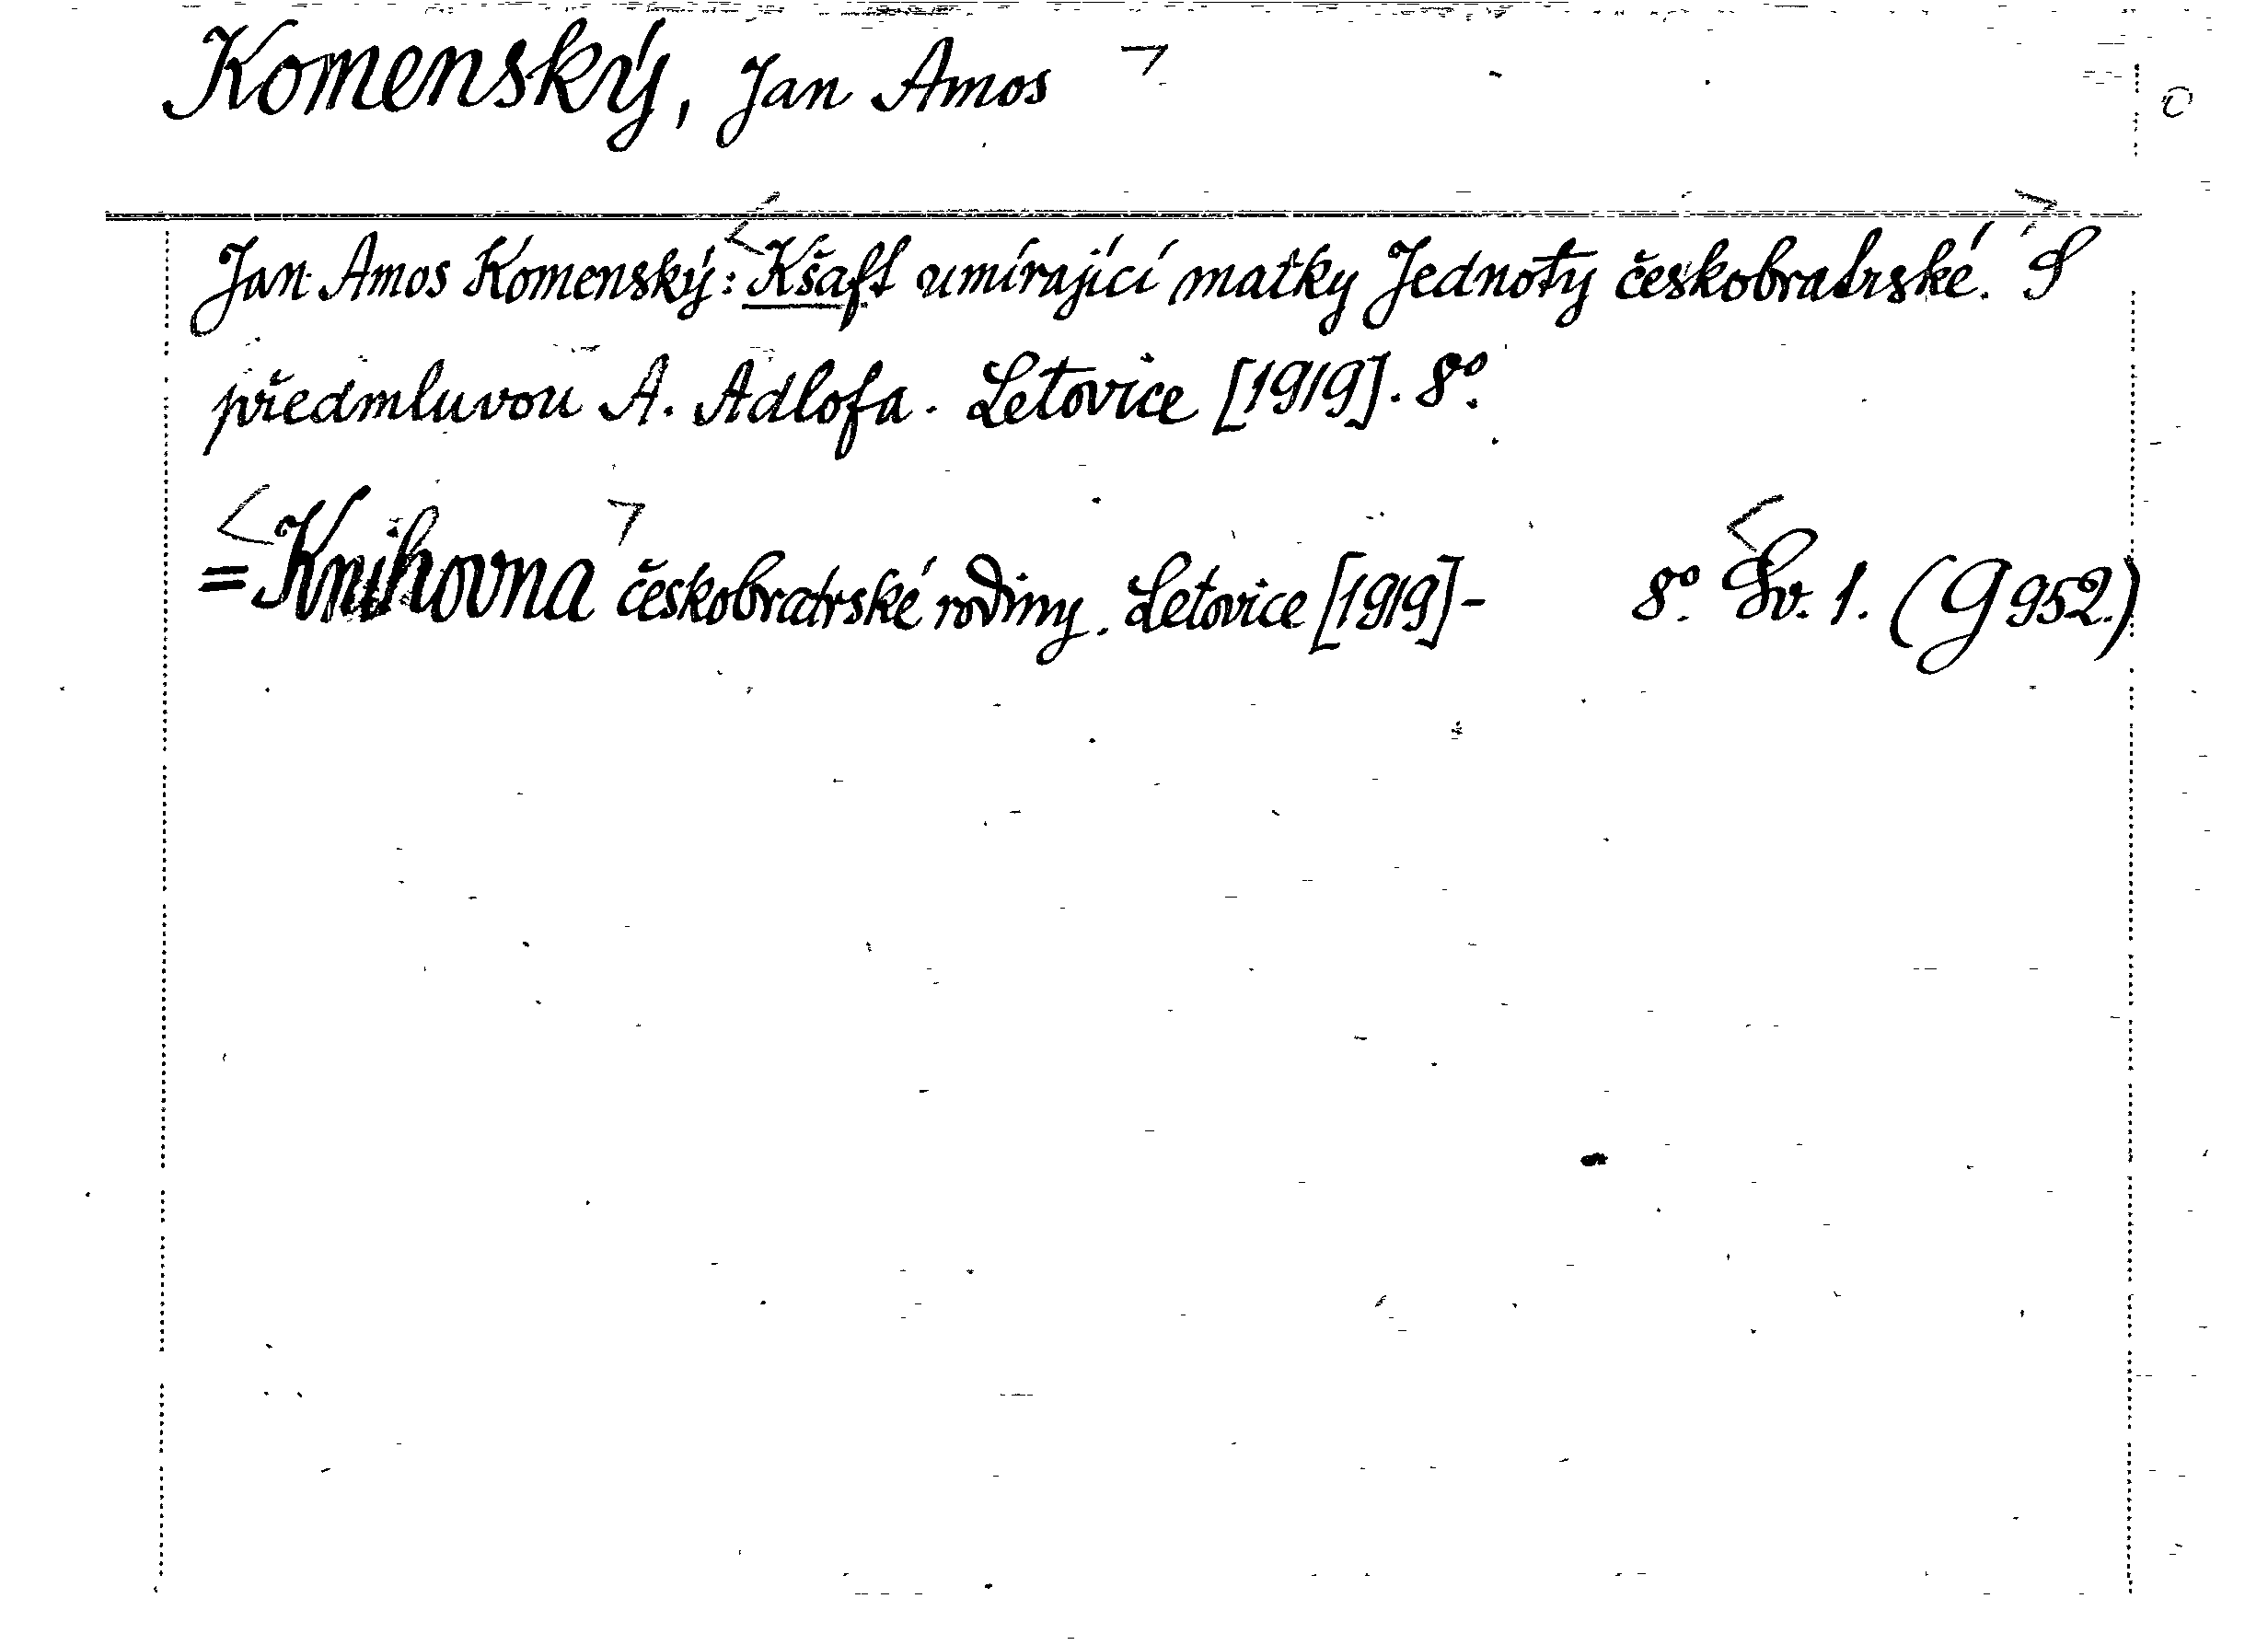 Komenský, Jan Amos
Jan Amos Komenský: Kšaft umírající matky Jednoty českobratrské. S
předmluvou A. Adlofa. Letovice [1919]. 8°.
= Knihovna českobratrské rodiny. Letovice [1919]- 8°. Sv. 1. (G 952.)